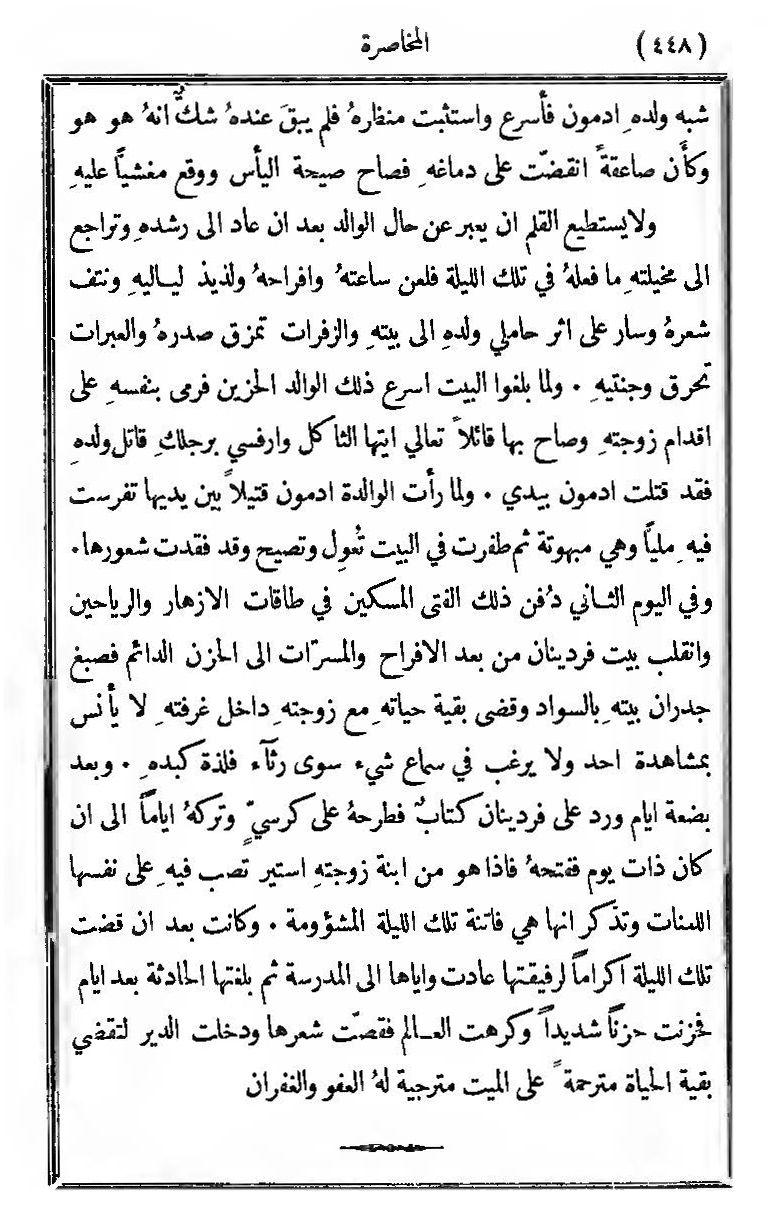 (٤٤٨) المخاصرة
شبه ولدهِ ادمون فأسرع واستثبت منظارهُ فلم يبقَ عندهُ شكٌّ انهُ هو هو
وكأَن صاعقةً انقضّت على دماغهِ فصاح صيحة اليأس ووقع مغشيًّا عليهِ
ولايستطيع القلم ان يعبر عن حال الوالد بعد ان عاد الى رشدهِ وتراجع
الى مخيلتهِ ما فعلهُ في تلك الليلة فلعن ساعتهُ وافراحهُ ولذيذ ليـاليهِ ونتف
شعرهُ وسار على اثر حاملي ولدهِ الى بيتهِ والزفرات تمزق صدرهُ والعبرات
تحرق وجنتيهِ . ولما بلغوا البيت اسرع ذلك الوالد الحزين فرمى بنفسهِ على
اقدام زوجتهِ وصاح بها قائلاً تعالي ايتها الثاكل وارفسي برجلكِ قاتل ولدهِ
فقد قتلت ادمون بيدي . ولما رأت الوالدة ادمون قتيلاً بين يديها تفرست
فيهِ مليًّا وهي مبهوتة ثم طفرت في البيت تُعوِل وتصيح وقد فقدت شعورها.
وفي اليوم الثـاني دُفن ذلك الفتى المسكين في طاقات الازهار والرياحين
وانقلب بيت فردينان من بعد الافراح والمسرّات الى الحزن الدائم فصبغ
جدران بيتهِ بالسواد وقضى بقية حياتهِ مع زوجتهِ داخل غرفتهِ لا يأنس
بمشاهدة احد ولا يرغب في سماع شيء سوى رثآء فلذة كبدهِ . وبعد
بضعة ايام ورد على فردينان كتابٌ فطرحهُ على كرسيٍّ وتركهُ اياماً الى ان
كان ذات يوم ففتحهُ فاذا هو من ابنة زوجتهِ استير تصب فيهِ على نفسها
اللعنات وتذكر انها هي فاتنة تلك الليلة المشؤومة . وكانت بعد ان قضت
تلك الليلة اكراماً لرفيقتها عادت واياها الى المدرسة ثم بلغتها الحادثة بعد ايام
فحزنت حزناً شديداً وكرهت العـالم فقصّت شعرها ودخلت الدير لتقضي
بقية الحياة مترحمةً على الميت مترجية لهُ العفو والغفران